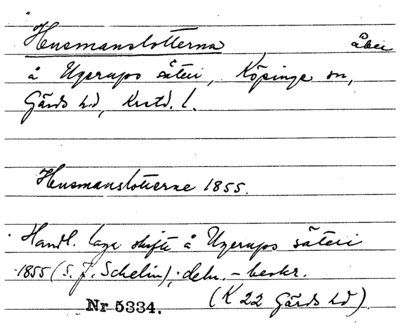 Husmanslotterna åker
å Ugerups säteri, Köpinge sn,
Gärds hd, Krstd. l.
Husmanslotterne 1855.
Handl. laga skifte å Ugerups säteri
1855 (S. J. Schelin); deln.-beskr.
(K 22 Gärds hd).
Nr 5334.